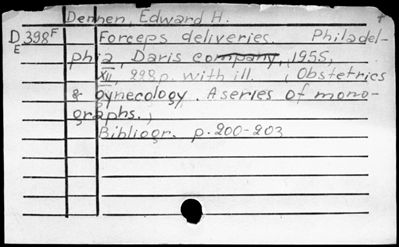 Dennen, Edward H.
D 398F Forceps deliveries. Philadel-
E
phia, Davis company, 1955,
XII, 238p. with ill. (Obstetrics
& gynecology. A series of mono-
graphs.)
Bibliogr. p. 200-203